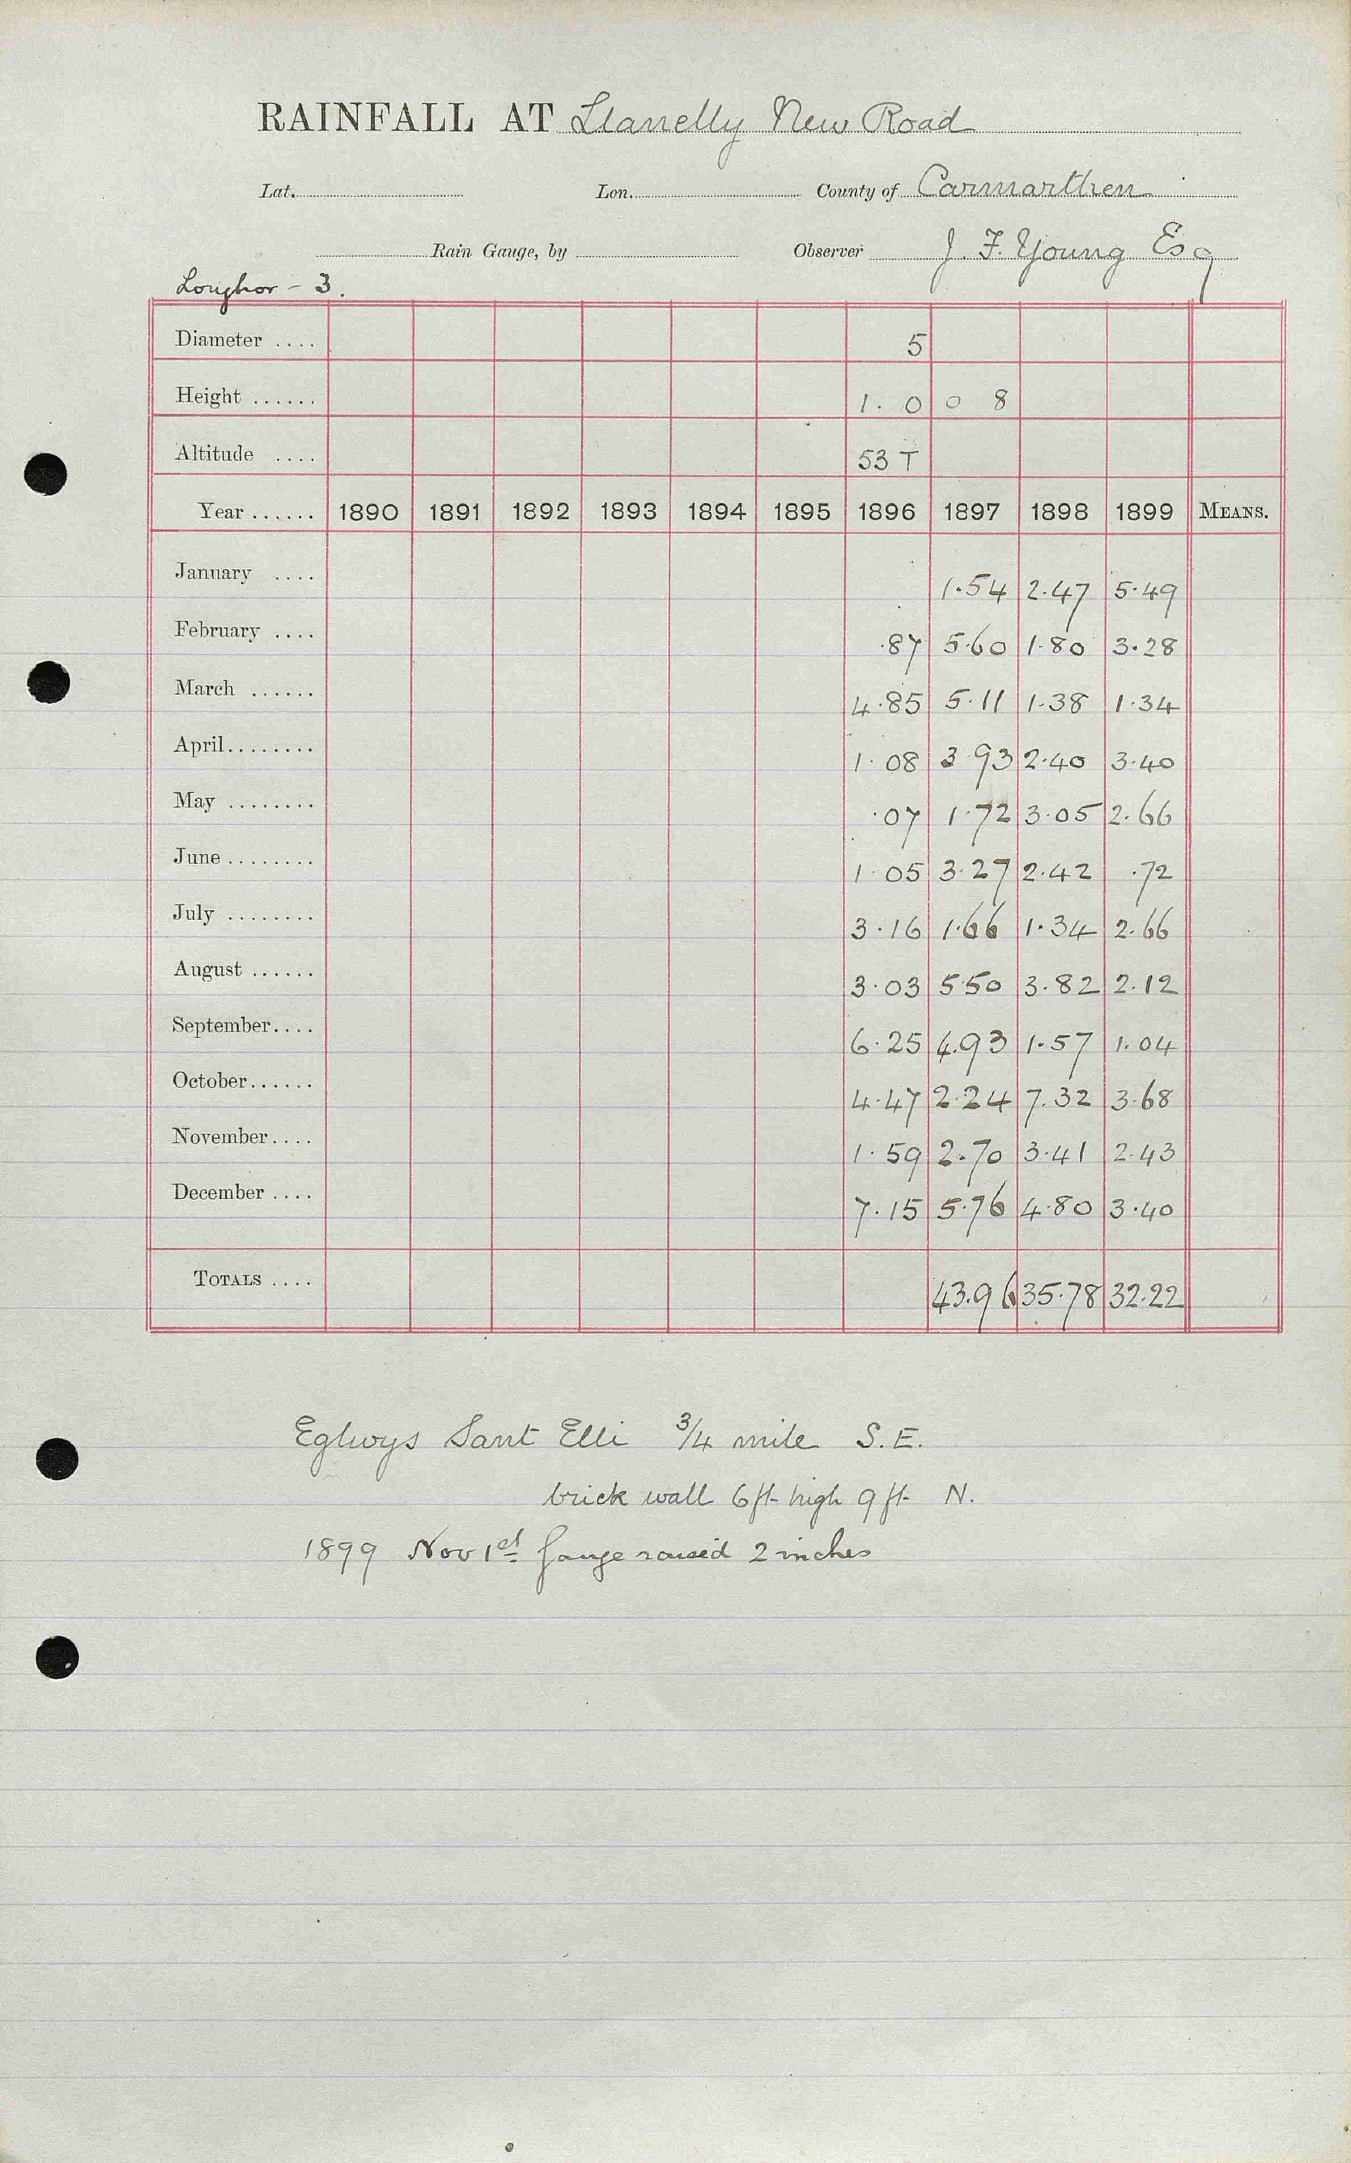 RAINFALL AT Llanelly New Road
Lat. Lon. County of Carmarthen
Rain Gauge, by Observer J. F. Young Esq
Loughor - 3.
Diameter .... 5
Height ...... 1. 0 0 8
Altitude .... 53 T
Year ...... 1890 1891 1892 1893 1894 1895 1896 1897 1898 1899 MEANS.
January .... 1.54 2.47 5.49
February .... .87 5.60 1.80 3.28
March ...... 4.85 5.11 1.38 1.34
April........ 1.08 3.93 2.40 3.40
May ........ .07 1.72 3.05 2.66
June ........ 1.05 3.27 2.42 .72
July ........ 3.16 1.66 1.34 2.66
August ...... 3.03 5.50 3.82 2.12
September.... 6.25 4.93 1.57 1.04
October...... 4.47 2.24 7.32 3.68
November.... 1.59 2.70 3.41 2.43
December .... 7.15 5.76 4.80 3.40
TOTALS .... 43.96 35.78 32.22
Eglwys Sant Elli 3/4 mile S.E.
brick wall 6ft high 9ft N.
1899 Nov 1st Gauge raised 2 inches